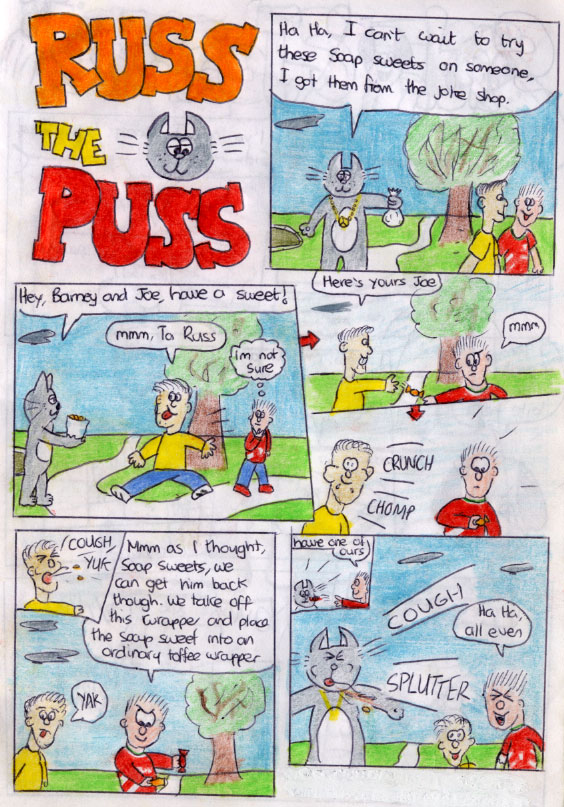 RUSS
THE
PUSS
Ha Ha, I can't wait to try
these Soap sweets on someone,
I got them from the joke shop.
Hey, Barney and Joe, have a sweet!
mmm, Ta Russ
i'm not
sure
Here's yours Joe
mmm
CRUNCH
CHOMP
COUGH,
YUK
Mmm as I thought,
Soap sweets, we
can get him back
though. We take off
this wrapper and place
the soap sweet into an
ordinary toffee wrapper
YAK
have one of
ours
COUGH
SPLUTTER
Ha Ha,
all even